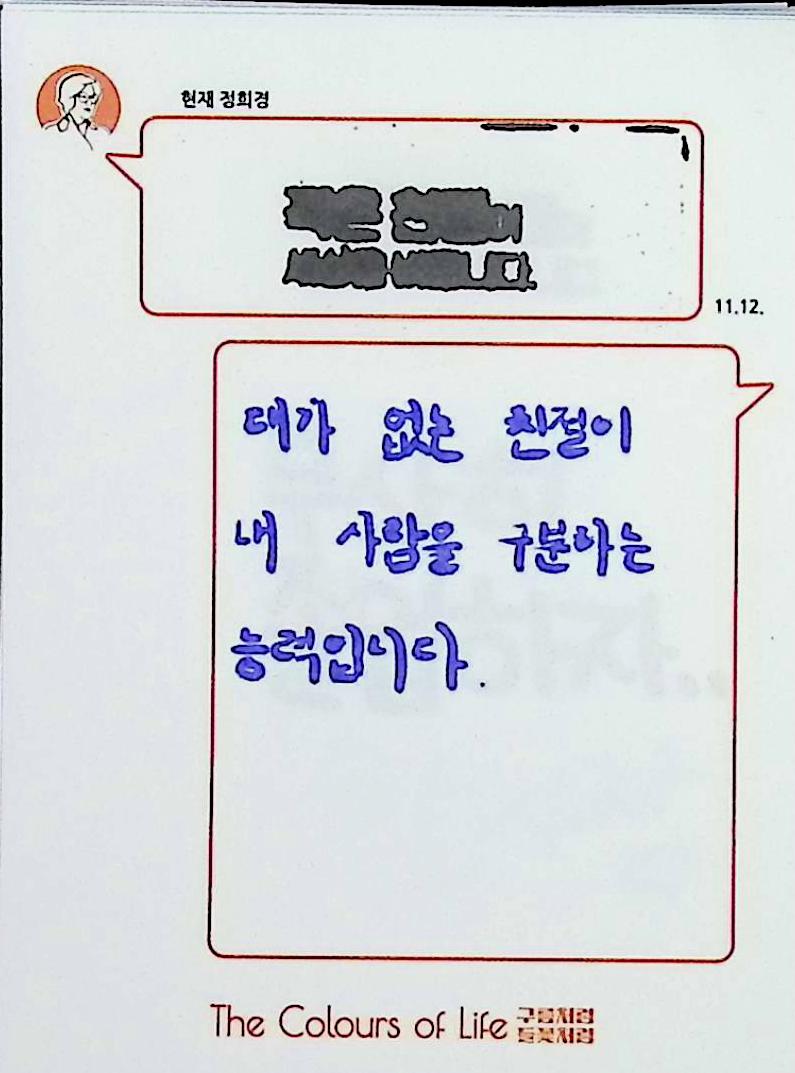 현재 정희경
11.12.
대가 없는 친절이
내 사람을 구분하는
능력입니다.
The Colours of Life 구름처럼
들꽃처럼